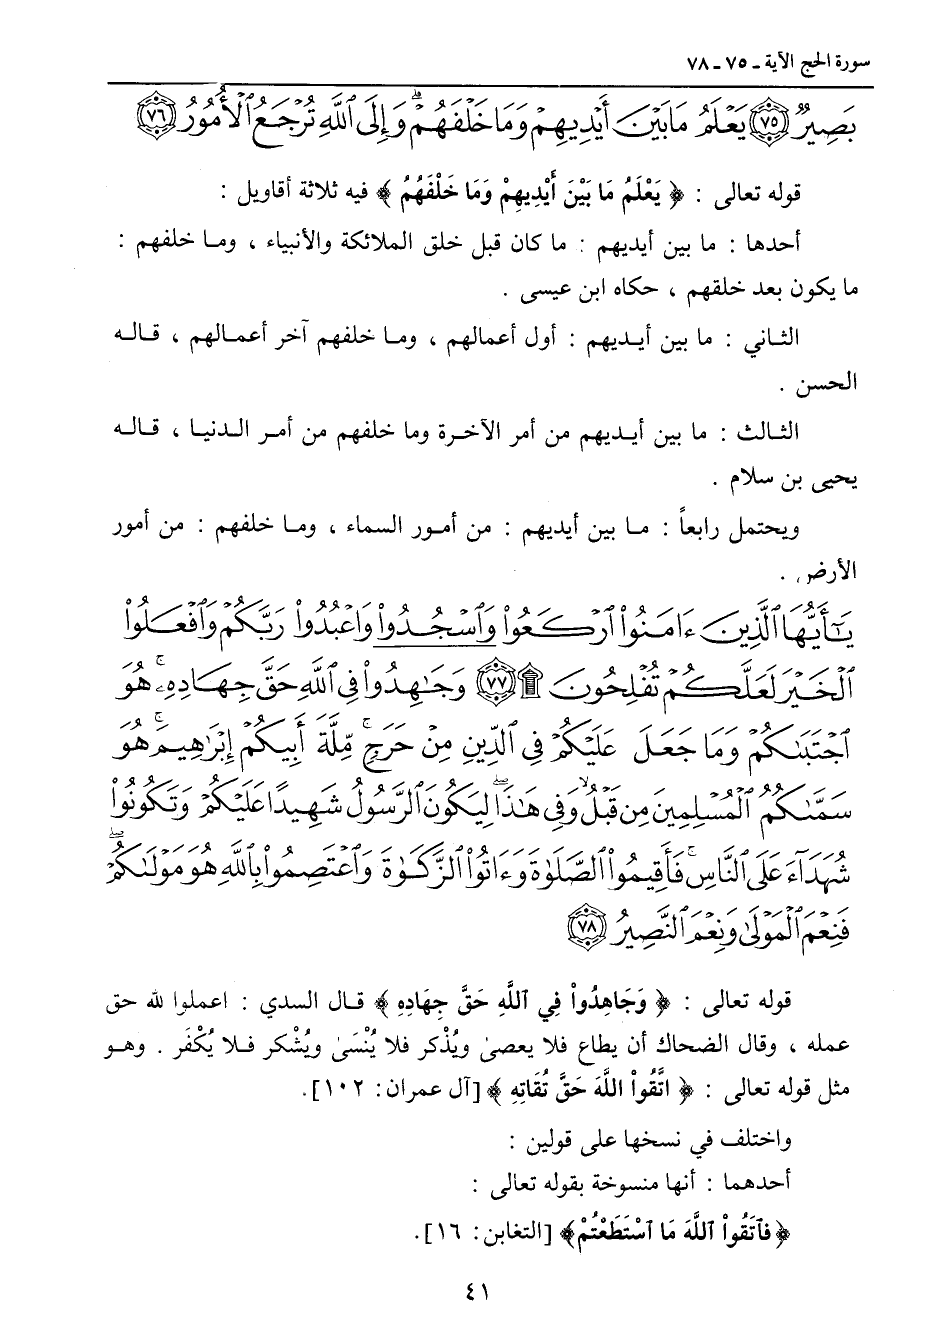 سورة الحج الآية ـ ٧٥ ـ ٧٨
بَصِيرٌ ﴿٧٥﴾ يَعْلَمُ مَا بَيْنَ أَيْدِيهِمْ وَمَا خَلْفَهُمْ ۗ وَإِلَى ٱللَّهِ تُرْجَعُ ٱلْأُمُورُ ﴿٧٦﴾
قوله تعالى : ﴿ يَعْلَمُ مَا بَيْنَ أَيْدِيهِمْ وَمَا خَلْفَهُمْ ﴾ فيه ثلاثة أقاويل :
أحدها : ما بين أيديهم : ما كان قبل خلق الملائكة والأنبياء ، وما خلفهم :
ما يكون بعد خلقهم ، حكاه ابن عيسى .
الثاني : ما بين أيديهم : أول أعمالهم ، وما خلفهم آخر أعمالهم ، قاله
الحسن .
الثالث : ما بين أيديهم من أمر الآخرة وما خلفهم من أمر الدنيا ، قاله
يحيى بن سلام .
ويحتمل رابعاً : ما بين أيديهم : من أمور السماء ، وما خلفهم : من أمور
الأرض .
يَـٰٓأَيُّهَا ٱلَّذِينَ ءَامَنُوا۟ ٱرْكَعُوا۟ وَٱسْجُدُوا۟ وَٱعْبُدُوا۟ رَبَّكُمْ وَٱفْعَلُوا۟
ٱلْخَيْرَ لَعَلَّكُمْ تُفْلِحُونَ ۩ ﴿٧٧﴾ وَجَـٰهِدُوا۟ فِى ٱللَّهِ حَقَّ جِهَادِهِۦ ۚ هُوَ
ٱجْتَبَىٰكُمْ وَمَا جَعَلَ عَلَيْكُمْ فِى ٱلدِّينِ مِنْ حَرَجٍ ۚ مِّلَّةَ أَبِيكُمْ إِبْرَٰهِيمَ ۚ هُوَ
سَمَّىٰكُمُ ٱلْمُسْلِمِينَ مِن قَبْلُ وَفِى هَـٰذَا لِيَكُونَ ٱلرَّسُولُ شَهِيدًا عَلَيْكُمْ وَتَكُونُوا۟
شُهَدَآءَ عَلَى ٱلنَّاسِ ۚ فَأَقِيمُوا۟ ٱلصَّلَوٰةَ وَءَاتُوا۟ ٱلزَّكَوٰةَ وَٱعْتَصِمُوا۟ بِٱللَّهِ هُوَ مَوْلَىٰكُمْ ۖ
فَنِعْمَ ٱلْمَوْلَىٰ وَنِعْمَ ٱلنَّصِيرُ ﴿٧٨﴾
قوله تعالى : ﴿ وَجَاهِدُواْ فِي اللَّهِ حَقَّ جِهَادِهِ ﴾ قال السدي : اعملوا لله حق
عمله ، وقال الضحاك أن يطاع فلا يعصىٰ ويُذْكر فلا يُنْسَىٰ ويُشْكر فلا يُكْفَر . وهو
مثل قوله تعالى : ﴿ اتَّقُواْ اللَّهَ حَقَّ تُقَاتِهِ ﴾ [آل عمران: ١٠٢].
واختلف في نسخها على قولين :
أحدهما : أنها منسوخة بقوله تعالى :
﴿فَٱتَقُواْ ٱللَّهَ مَا ٱسْتَطَعْتُمْ﴾ [التغابن: ١٦].
٤١